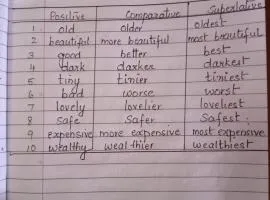 Positive Comparative Superlative
1 old older oldest
2 beautiful more beautiful most beautiful
3 good better best
4 dark darker darkest
5 tiny tinier tiniest
6 bad worse worst
7 lovely lovelier loveliest
8 safe safer safest
9 expensive more expensive most expensive
10 wealthy wealthier wealthiest